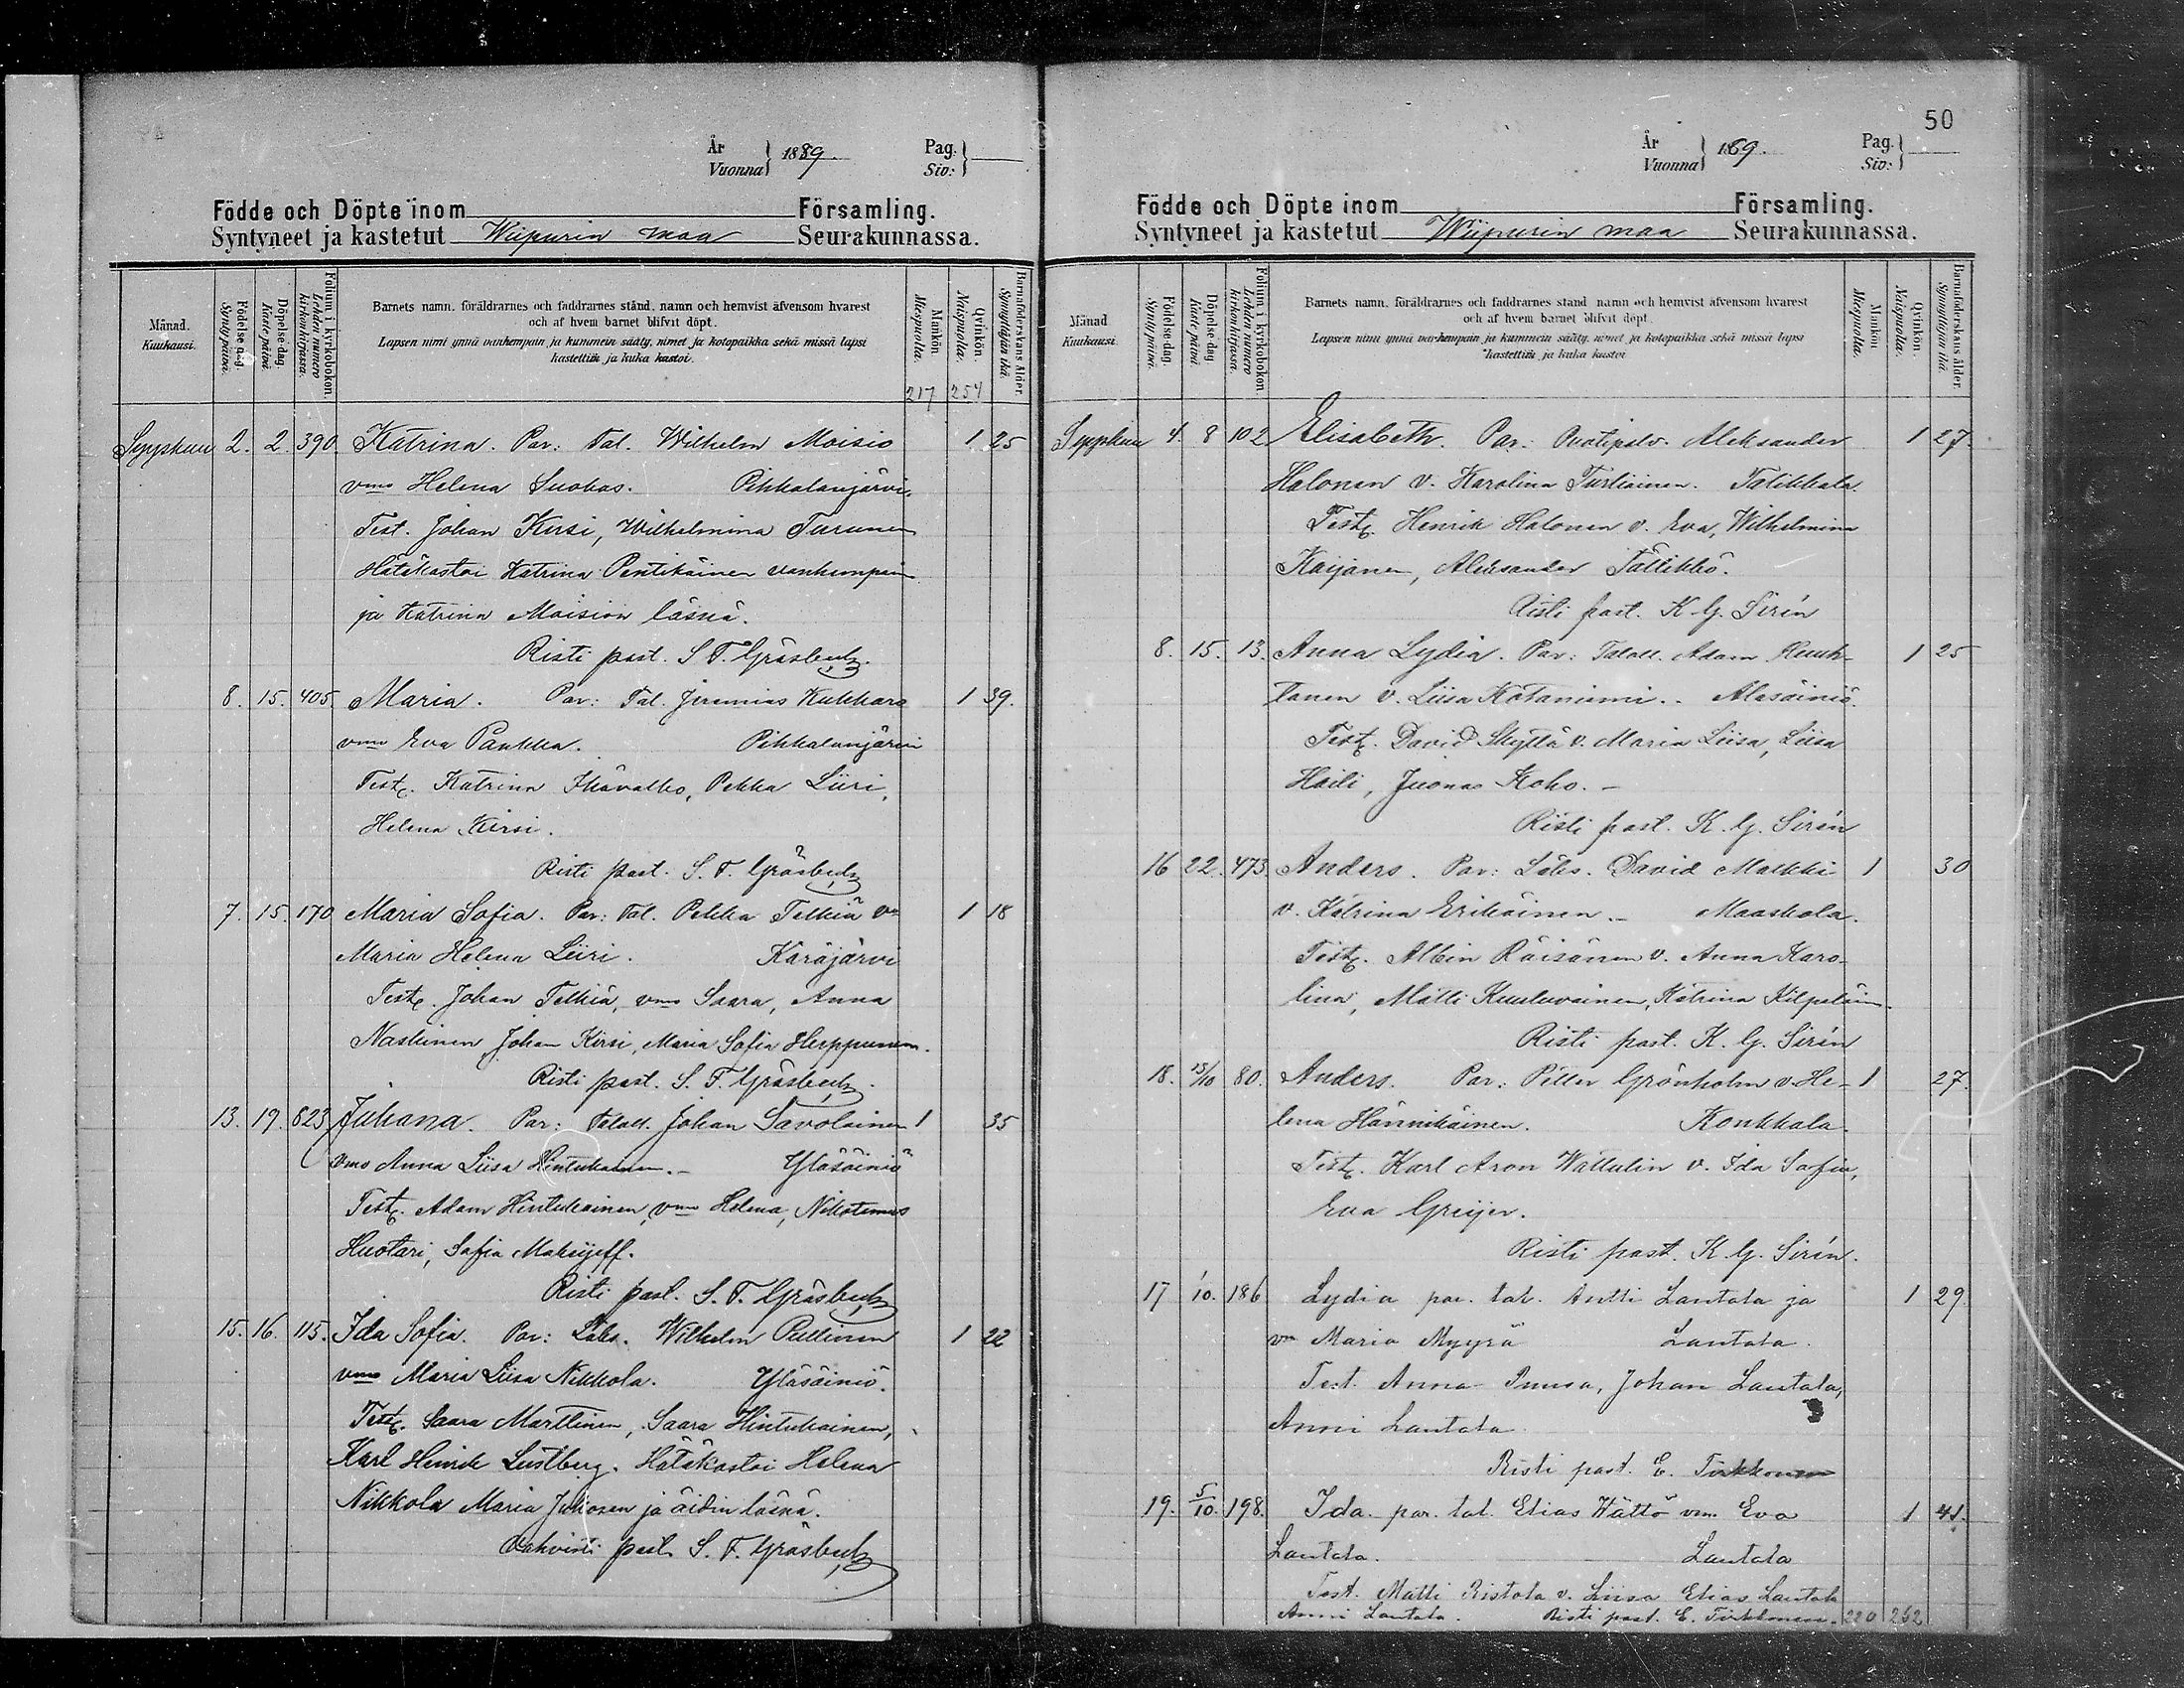 År
Vuonna } 1889.
Pag.
Siv:
Födde och Döpte inom Församling.
Syntyneet ja kastetut Wiipurin maa Seurakunnassa.
Månad.
Kuukausi.
Födelse-dag.
Syntypäivä.
Döpelse-dag.
Kastepäivä.
Folium i kyrkoboken.
Lehden numero kirkonkirjassa.
Barnets namn, föräldrarnes och faddrarnes stånd, namn och hemvist äfvensom hvarest
och af hvem barnet blifvit döpt.
Lapsen nimi ynnä vanhempain ja kummein sääty, nimet ja kotopaikka sekä missä lapsi
kastettiin ja kuka kastoi.
Mankön.
Miespuolia.
Qvinkön.
Naispuolia.
Barnaföderskans ålder.
Synnyttäjän ikä.
217 254
Syyskuu 2. 2. 390. Katrina. Par: Tal. Wilhelm Moisio 1 25
vmo Helena Suokas. Pihkalanjärvi.
Test. Johan Kirsi, Wilhelmina Turunen
Hätäkastoi Katrina Pentikäinen vanhempain
ja Katrina Moision läsnä.
Risti past. S. T. Gräsbeck.
8. 15. 405. Maria. Par: Tal. Jeremias Kukkara 1 39.
vmo Eva Paukka. Pihkalanjärvi
Test. Katrina Ihävalko, Pekka Liiri,
Helena Kirsi.
Risti past. S. T. Gräsbeck
7. 15. 170 Maria Sofia. Par: Tal. Pekka Telkiä vm 1 18
Maria Helena Liiri. Käräjärvi
Test. Johan Telkiä, vmo Saara, Anna
Naskinen, Johan Kirsi, Maria Sofia Herppunen.
Risti past. S. T. Gräsbeck.
13. 19. 623 Juhana. Par: Talall. Johan Savolainen 1 35
vmo Anna Liisa Hintukainen. Yläsäiniö
Test. Adam Hintukainen, vmo Helena, Nikotemus
Huotari, Sofia Makijeff.
Risti past. S. T. Gräsbeck
15. 16. 115. Ida Sofia. Par: Loks. Wilhelm Pullinen 1 22
vmo Maria Liisa Nikkola. Yläsäiniö.
Test. Saara Marttinen, Saara Hintukainen,
Karl Henrik Lustberg. Hätäkastoi Helena
Nikkola Maria Juhosen ja äidin läsnä.
Vahvisti past. S. T. Gräsbeck
50
År
Vuonna } 1889.
Pag.
Siv:
Födde och Döpte inom Församling.
Syntyneet ja kastetut Wiipurin maa Seurakunnassa.
Månad
Kuukausi.
Födelse-dag.
Syntypäivä.
Döpelse-dag
Kastepäivä.
Folium i kyrkoboken.
Lehden numero kirkonkirjassa.
Barnets namn, föräldrarnes och faddrarnes stånd namn och hemvist äfvensom hvarest
och af hvem barnet blifvit döpt.
Lapsen nimi ynnä vanhempain ja kummein sääty, nimet ja kotopaikka sekä missä lapsi
kastettiin ja kuka kastoi
Mankön
Miespuolia.
Qvinkön.
Naispuolia.
Barnaföderskans ålder.
Synnyttäjän ikä.
Syyskuu 4. 8 102 Elisabeth. Par: Puotipalv. Aleksander 1 27.
Halonen v. Karolina Turtiainen. Talikkala.
Test. Henrik Halonen v. Eva, Wilhelmina
Kaijanen, Aleksander Tällikkö.
Risti past. K. G. Sirén
8. 15. 13. Anna Lydia. Par: Talall. Adam Kuuk- 1 25
lanen v. Liisa Kotaniemi. Alasäiniö.
Test. David Skyttä v. Maria Liisa, Liisa
Haili, Juonas Koho.
Risti past. K. G. Sirén
16 22. 473. Anders. Par: Loks. David Malkki 1 30
v. Katrina Erikäinen. Maaskola.
Test. Albin Räisänen v. Anna Karo-
lina, Matti Kuuluvainen, Katrina Kilpeläin.
Risti past. K. G. Sirén
18. 25/10 80. Anders. Par: Petter Grönholm v. He- 1 27.
lena Hännikäinen. Konkkala.
Test. Karl Aron Wattulin v. Ida Sofia,
Eva Greijer.
Risti past. K. G. Sirén.
17 1/10. 186 Lydia par. tal. Antti Lantala ja 1 29
vm Maria Myyrä Lantala.
Test. Anna Pumsa, Johan Lautala,
Anni Lautala
Risti past. E. Tirkkonen
19. 5/10. 198. Ida par. tal. Elias Wättö vm. Eva 1 41.
Lautala. Lautala
Test. Matti Ristola v. Liisa Elias Lautala
Anni Lautala. Risti past. E. Tirkkonen. 220 262